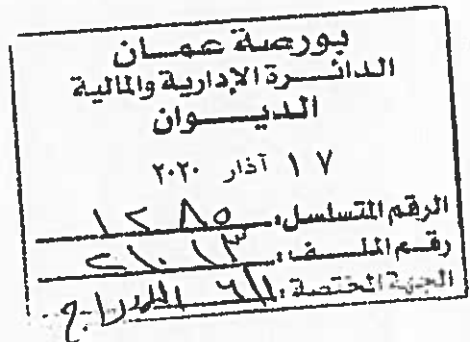 بورصة عمان
الدائرة الإدارية والمالية
الديوان
١٧ آذار ٢٠٢٠
الرقم المتسلسل: ١٢٨٥
رقم الملف: ٢١٠١٣
الجهة المختصة: